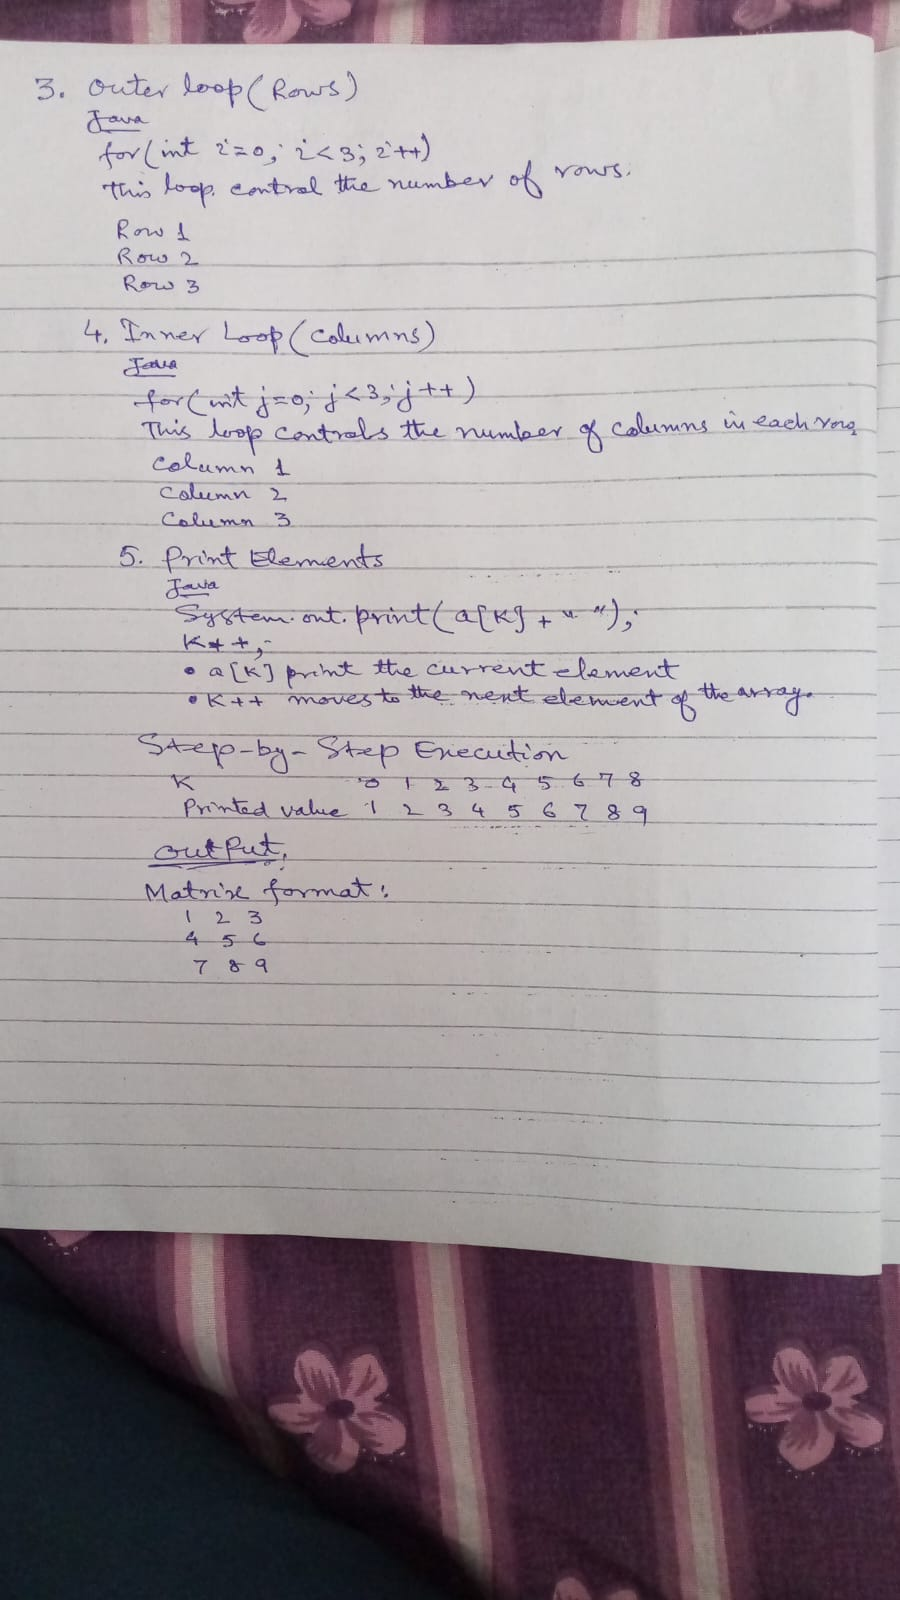 3. Outer loop (Rows)
Java
for(int i=0; i<3; i++)
This loop control the number of rows.
Row 1
Row 2
Row 3
4. Inner Loop (Columns)
Java
for(int j=0; j<3; j++)
This loop controls the number of columns in each row
Column 1
Column 2
Column 3
5. Print Elements
Java
System.out.print(a[K] + " ");
K++;
• a[K] print the current element
• K++ moves to the next element of the array.
Step-by-Step Execution
K 0 1 2 3 4 5 6 7 8
Printed value 1 2 3 4 5 6 7 8 9
Output,
Matrix format:
1 2 3
4 5 6
7 8 9